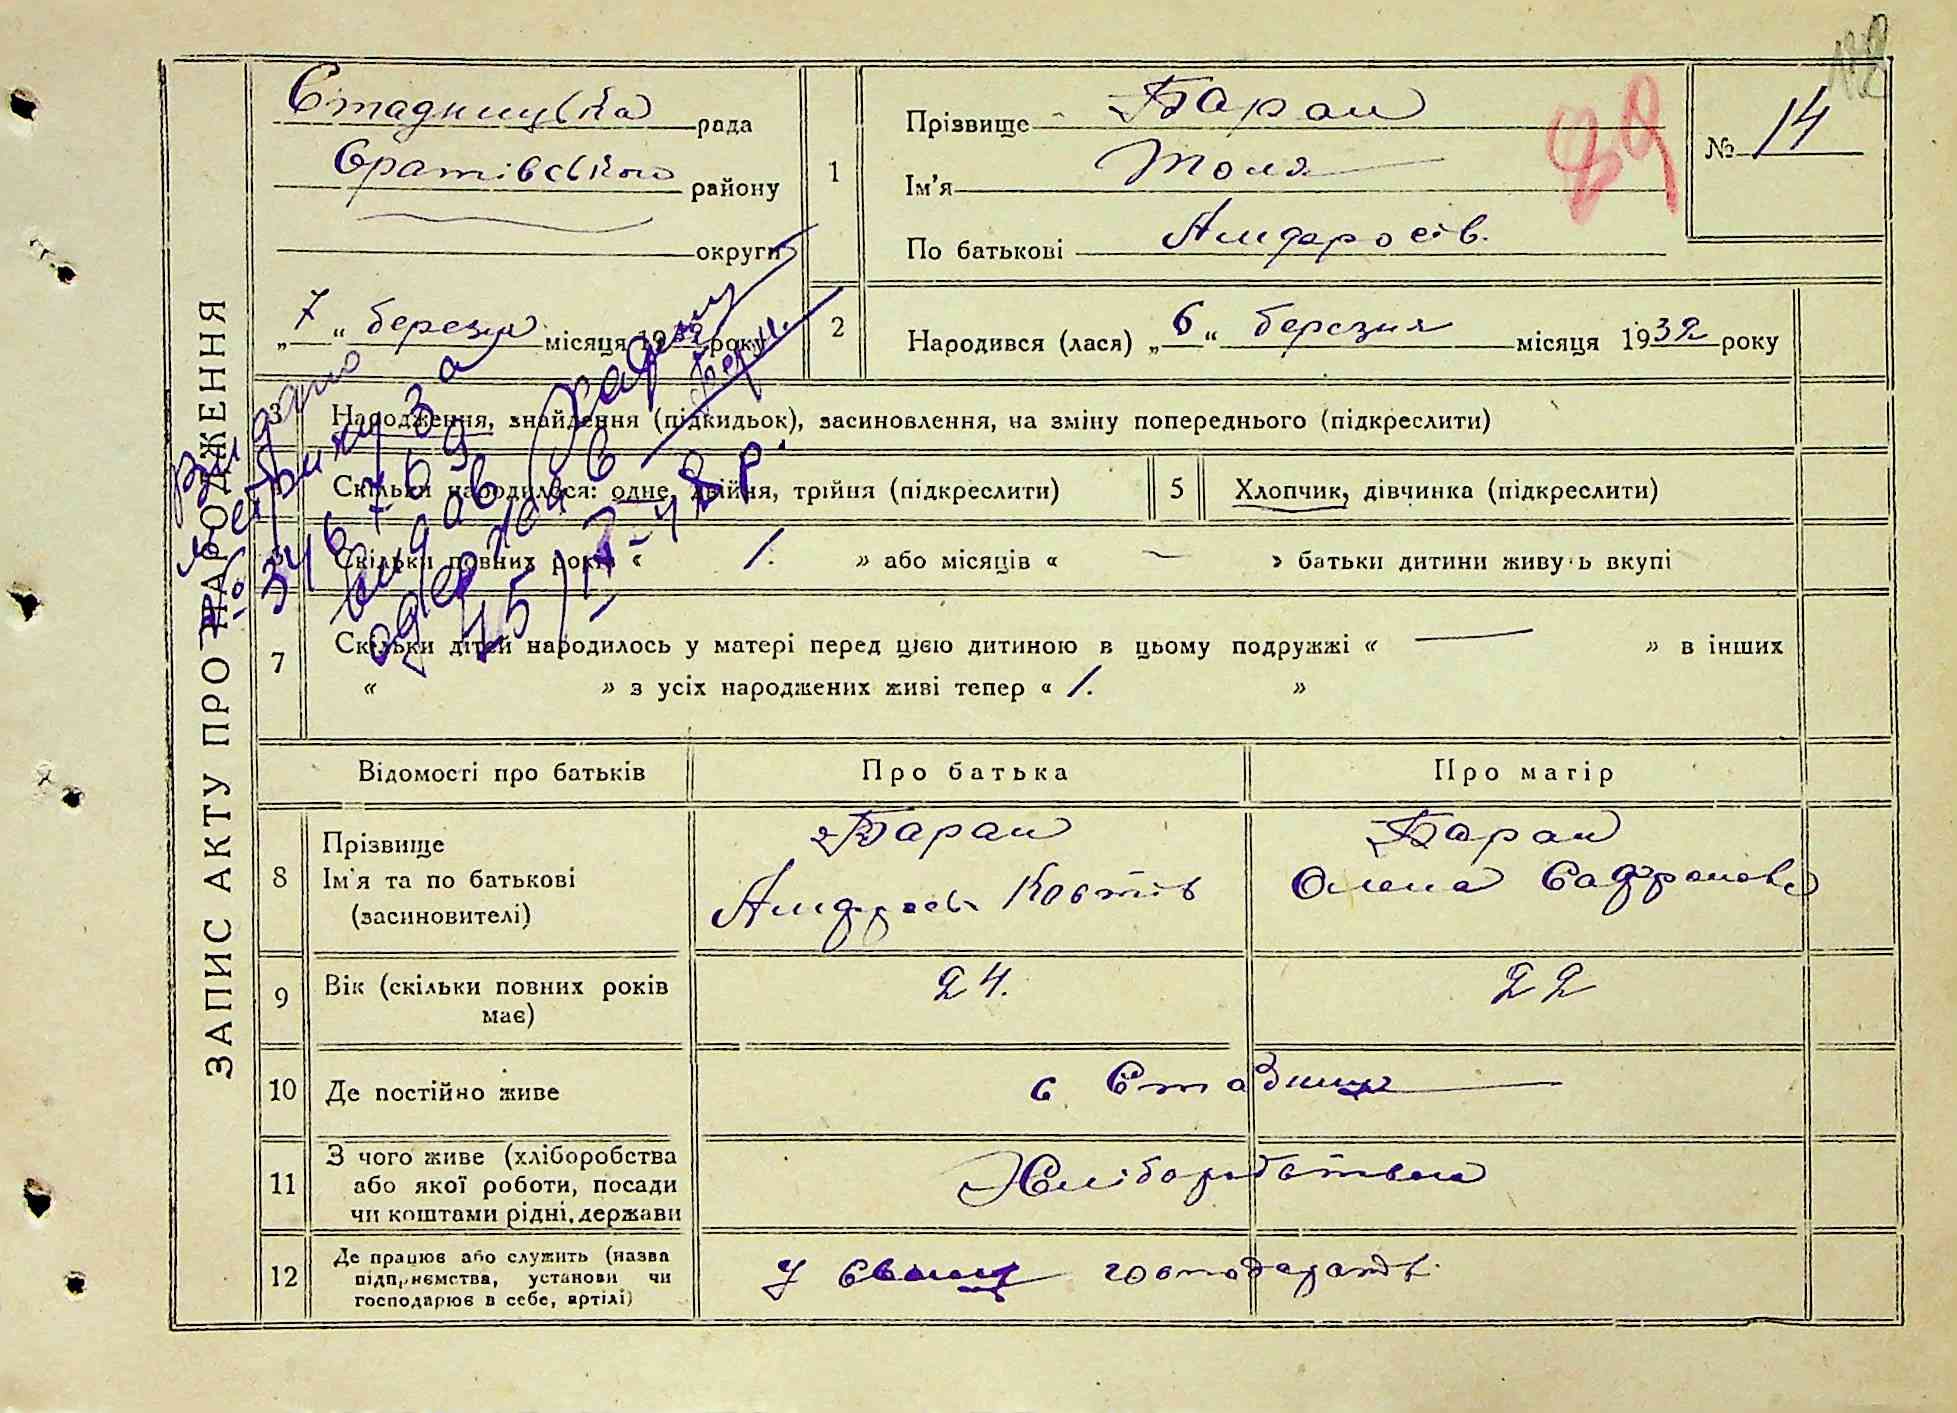 ЗАПИС АКТУ ПРО НАРОДЖЕННЯ
Стадницька рада
району
округи
„7“ березня місяця 1932 року
1
Прізвище Баран
Ім'я Толя
По батькові Андросів.
№ 14
29
2
Народився (лася) „6“ березня місяця 1932 року
3 Народження, знайдення (підкидьок), засиновлення, на зміну попереднього (підкреслити)
Скільки народилося: одне, двійня, трійня (підкреслити)
5 Хлопчик, дівчинка (підкреслити)
Скільки повних років « 1. » або місяців « — » батьки дитини живуть вкупі
7 Скільки дітей народилось у матері перед цією дитиною в цьому подружжі « — » в інших
« » з усіх народжених живі тепер « 1. »
Видано
метрику за
№ 347769
видав
одержав
15/IV-48 р.
Відомості про батьків Про батька Про матір
8 Прізвище
Ім'я та по батькові
(засиновителі)
Баран
Андрось Костів
Баран
Олена Сафронова
9 Вік (скільки повних років
має)
24. 22
10 Де постійно живе с Стадниця
11 З чого живе (хліборобства
або якої роботи, посади
чи коштами рідні, держави
Хліборобством
12 Де працює або служить (назва
підприємства, установи чи
господарює в себе, артілі)
У господарстві